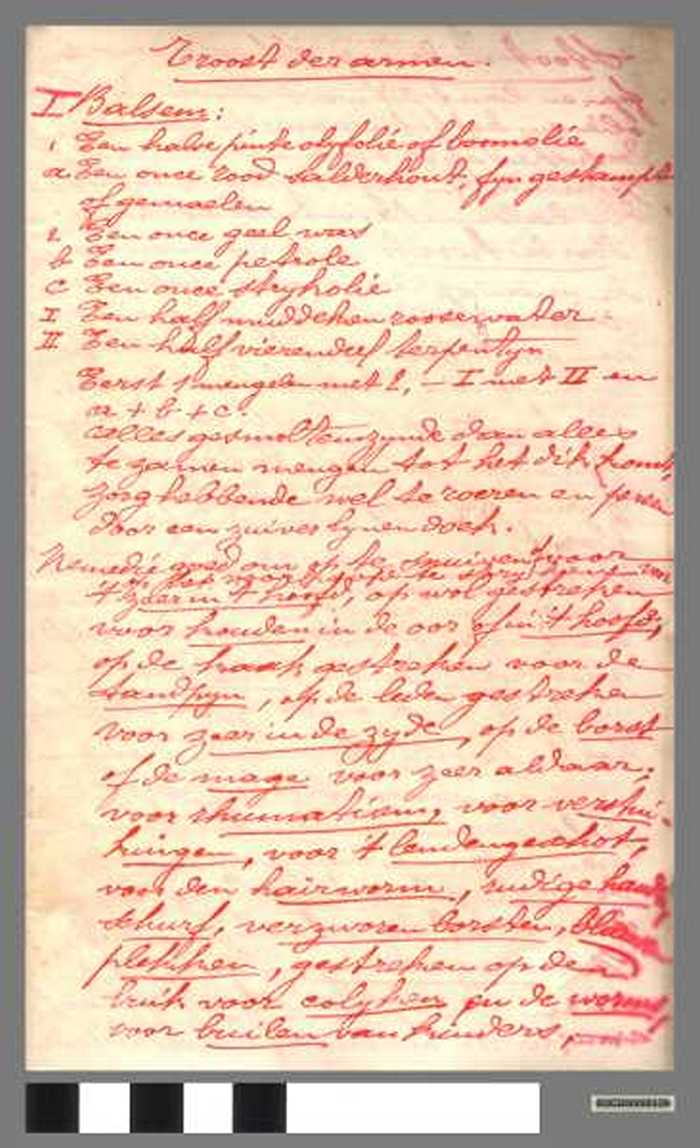 Troost der armen.
I Balsem:
1 Een halve pinte olyfolie of boomolie
a. Een once rood salderhout, fyn gestampt
of gemaelen
2 Een once geel was
b Een once petrole
c Een once stryholie
I Een half muddeken roosewater
II Een half vierendeel terpentyn
Eerst 1 mengelen met 2, - I met II en
a + b + c.
alles gesmolten zynde dan alles
te zamen mengen tot het dik komt,
zorg hebbende wel te roeren en
door een zuiver lynen doek.
Remedie goed om op te snuiven voor
't zeer in 't hoofd, op wol gestreken
voor kouden in de oor of in 't hoofd,
op de kaak gestreken voor de
tandpyn, op de leden gestreken
voor zeer in de zyde, op de borst
of de mage voor zeer aldaar,
voor rhumatism, voor verstui-
kingen, voor 't lendengeschot,
voor den hairworm, rudige hand
schurf, verzworen borsten, blauw
plekken, gestreken op den
buik voor colyken en de worms,
voor builen van kinders,